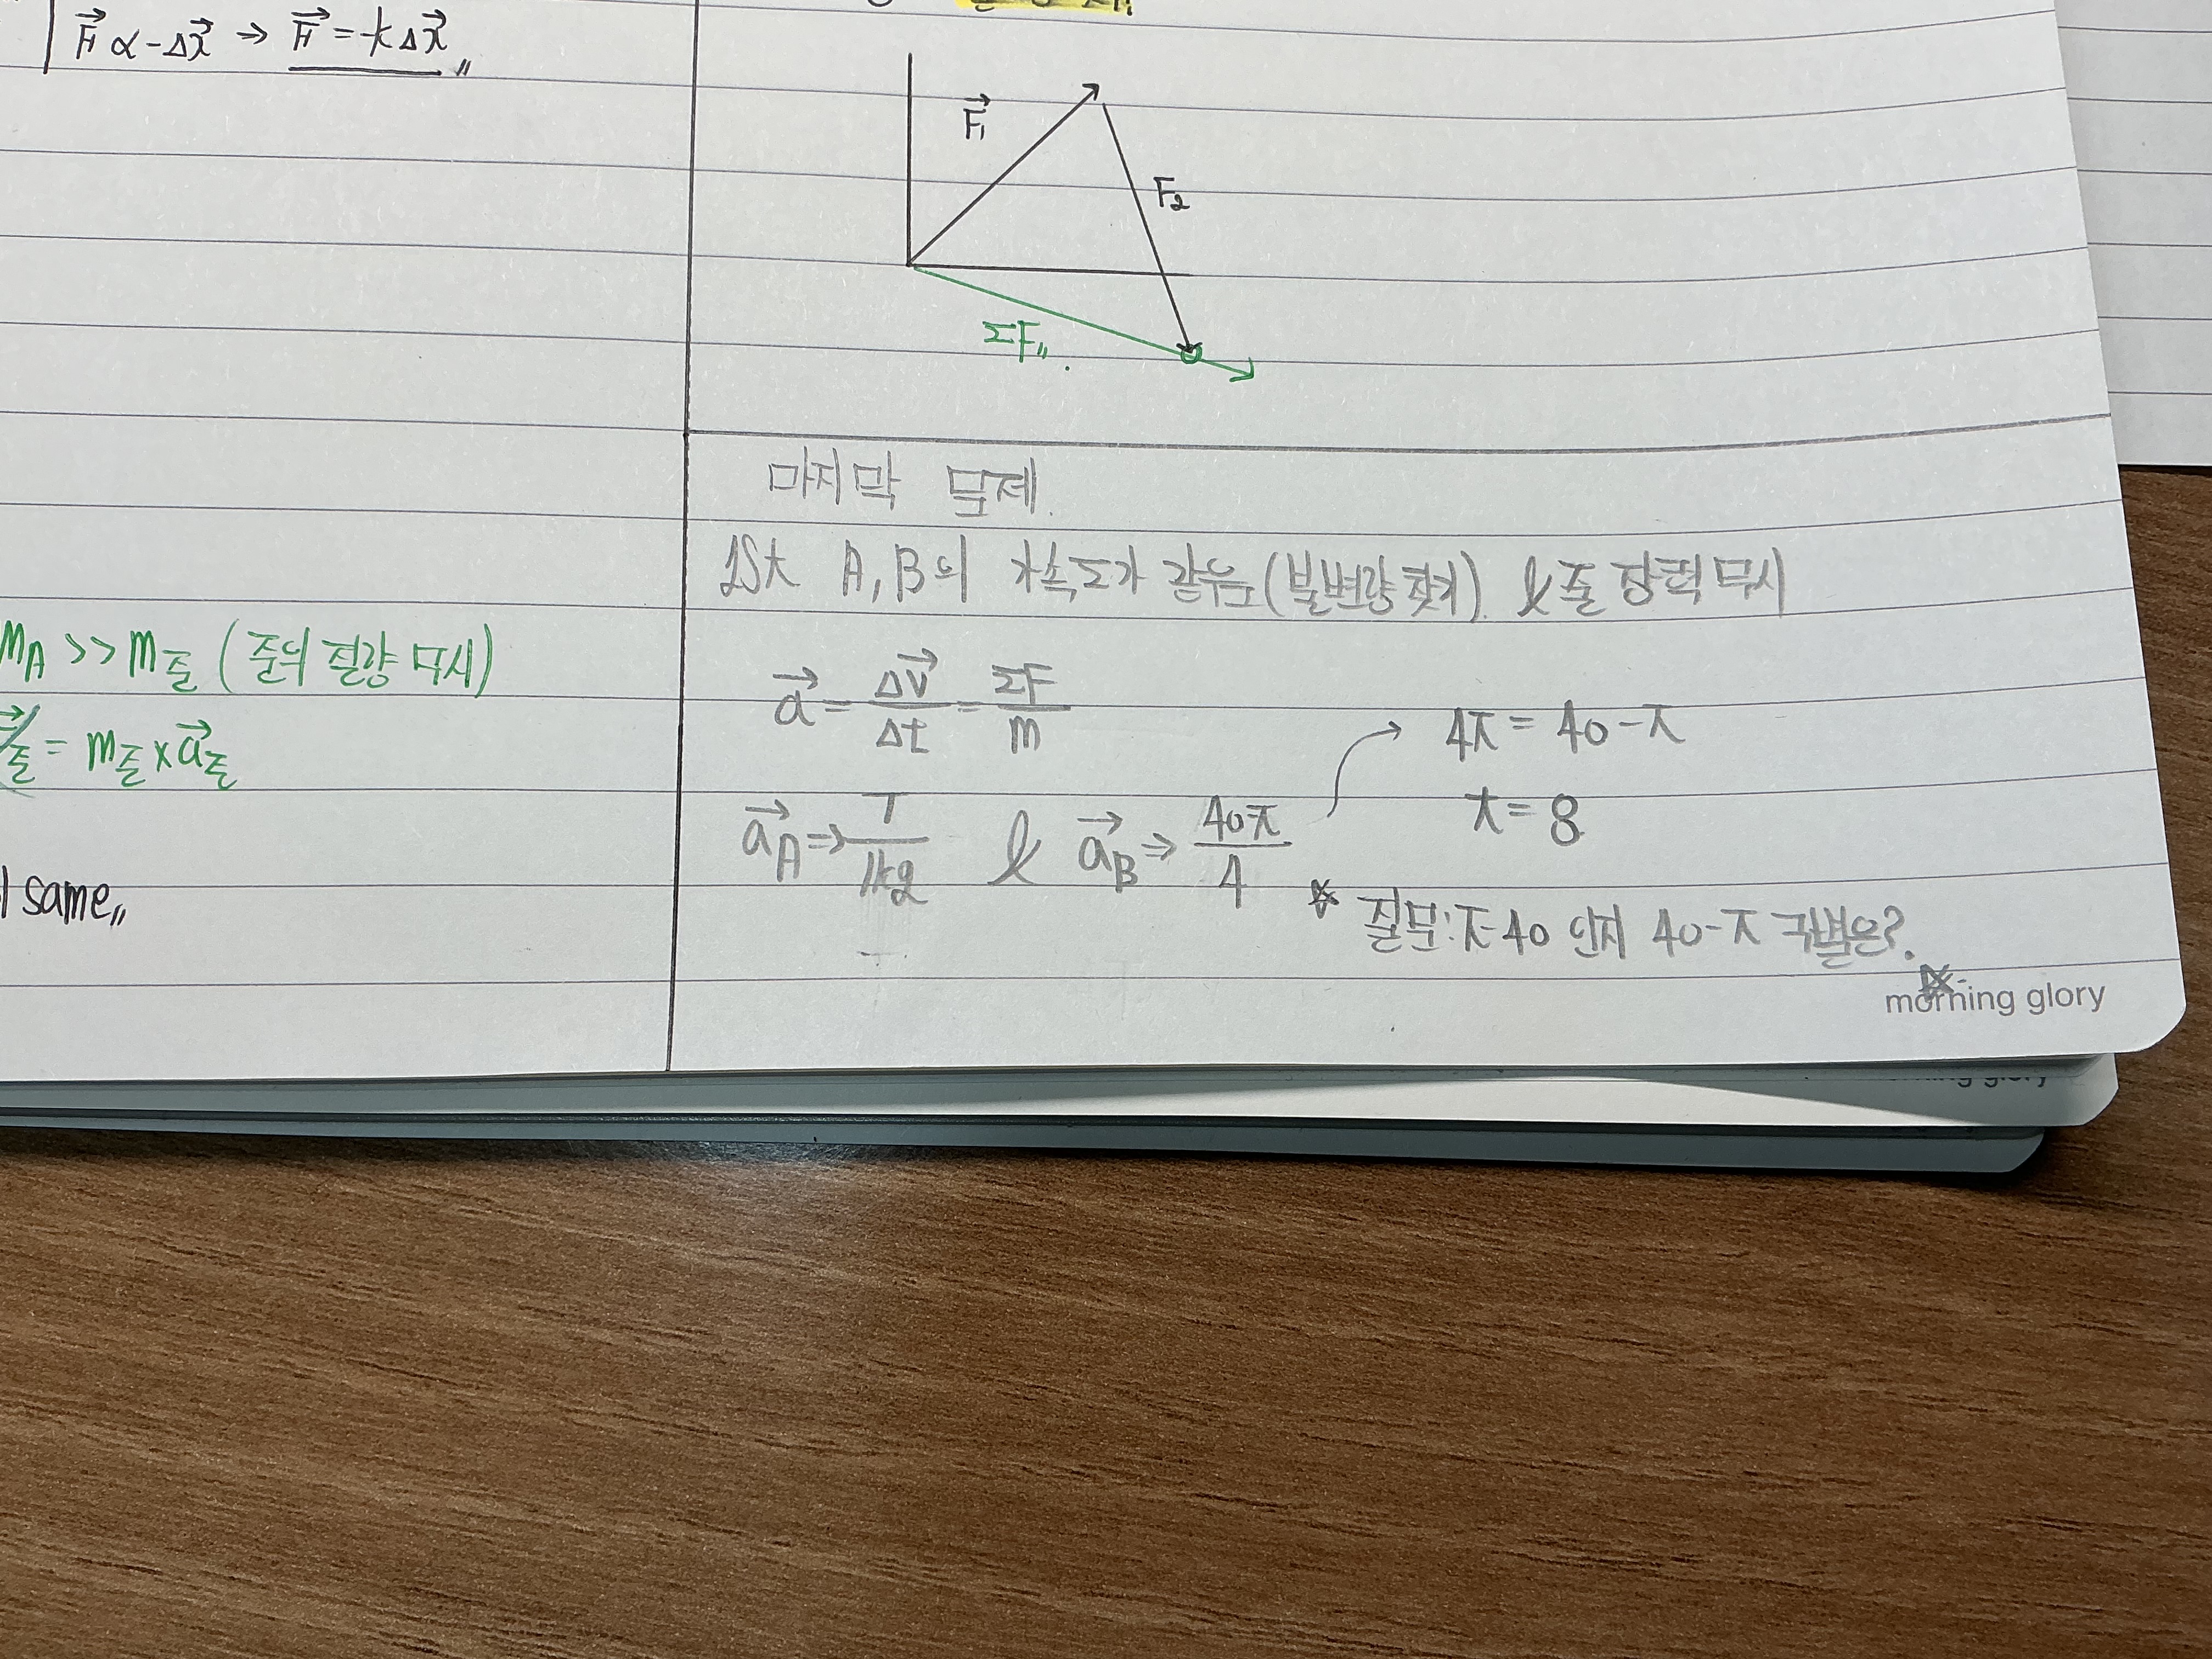 F⃗ ∝ -Δx⃗ ⇒ F⃗ = -kΔx⃗
F⃗₁
F₂
ΣF
m_A >> m_줄 (줄의 질량 무시)
= m_줄 × a⃗_줄
same
마지막 문제.
1St A, B의 가속도가 같음 (불변량 찾기). & 줄 장력 무시
a⃗ = Δv⃗/Δt = ΣF/m
a⃗_A ⇒ T/1kg & a⃗_B ⇒ 40-T/4
4T = 40-T
T = 8
질문: T-40 인지 40-T 구별은?
morning glory